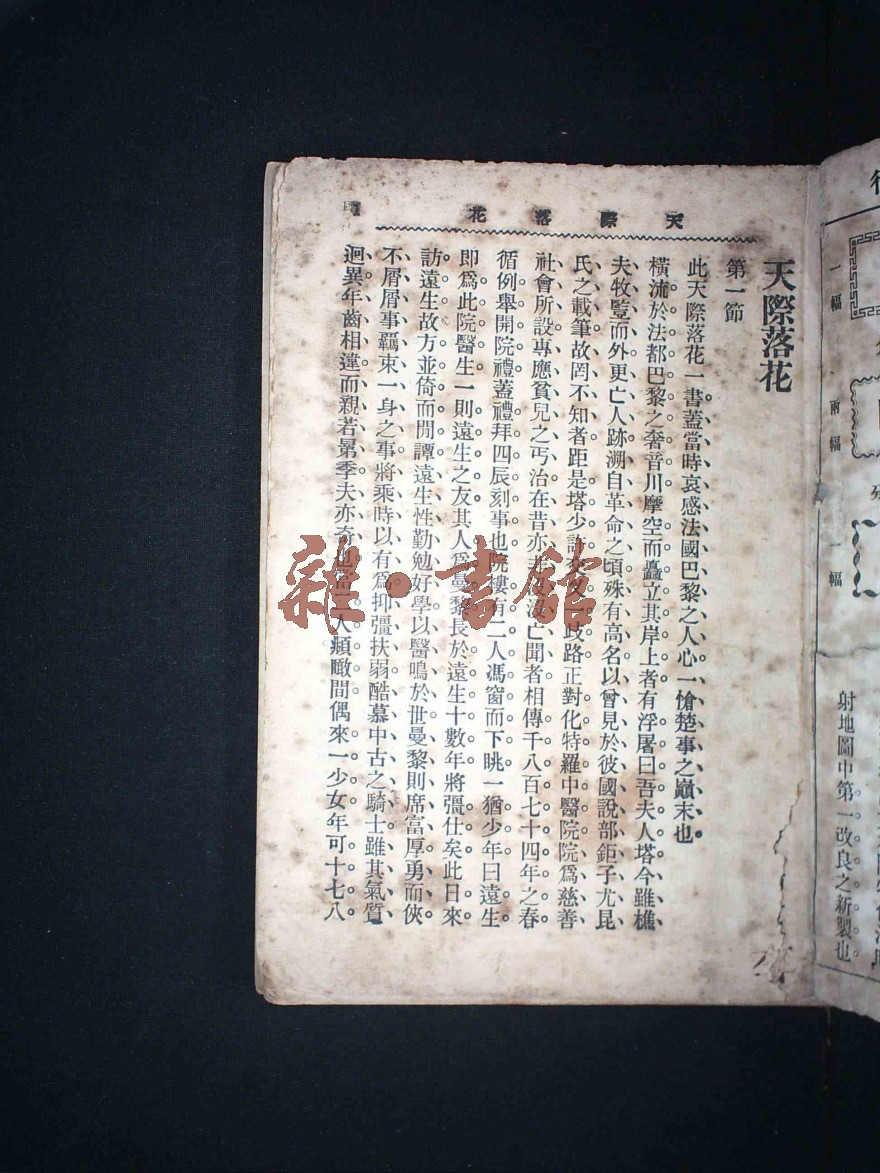 天際落花
天際落花
第一節
此天際落花一書蓋當時哀感法國巴黎之人心一愴楚事之巔末也
橫流於法都巴黎之奢音川摩空而矗立其岸上者有浮屠曰吾夫人塔今雖樵
夫牧豎而外更亡人跡溯自革命之頃殊有高名以曾見於彼國說部鉅子尤昆
氏之載筆故罔不知者距是塔少許交叉一歧路正對化特羅中醫院院爲慈善
社會所設專應貧兒之丐治在昔亦聞者相傳千八百七十四年之春
循例舉開院禮蓋禮拜四辰刻事也院樓有二人馮窗而下眺一猶少年曰遠生
即爲此院醫生一則遠生之友其人爲曼黎長於遠生十數年將彊仕矣此日來
訪遠生故方並倚而閒譚遠生性勤勉好學以醫鳴於世曼黎則席富厚勇而俠
不屑屑事羈束一身之事將乘時以有爲抑彊扶弱酷慕中古之騎士雖其氣質
迥異年齒相違而親若昴季夫亦奇也當二人頫瞰間偶來一少女年可十七八
一幅
兩幅
一幅
射地圖中第一改良之新製也
雜·書館